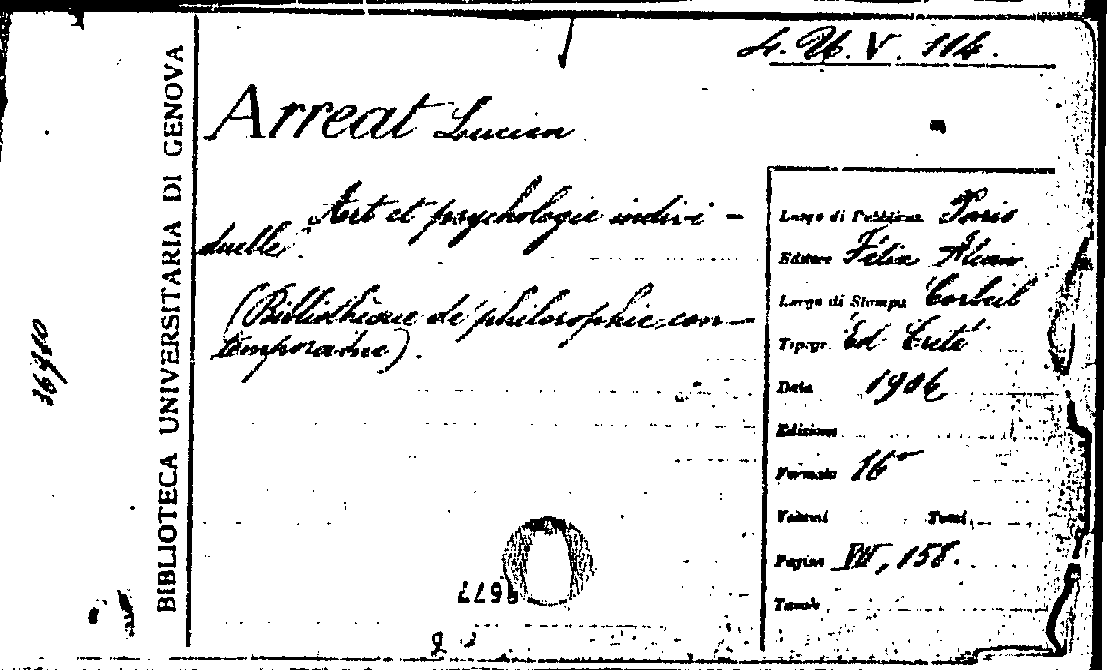 4. U. V. 114.
Arreat Lucien
Art et psychologie indivi-
duelle.
(Bibliothèque de philosophie con-
temporaine).
BIBLIOTECA UNIVERSITARIA DI GENOVA
Luogo di Pubblicaz. Paris
Editore Félix Alcan
Luogo di Stampa Corbeil
Tipogr. Ed Creté
Data 1906
Edizione
Formato 16°
Volumi Tomi
Pagine VII, 158.
Tavole